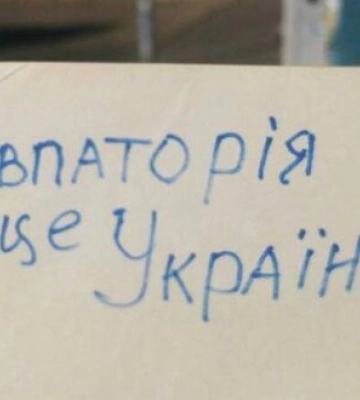 впаторія
це Україн